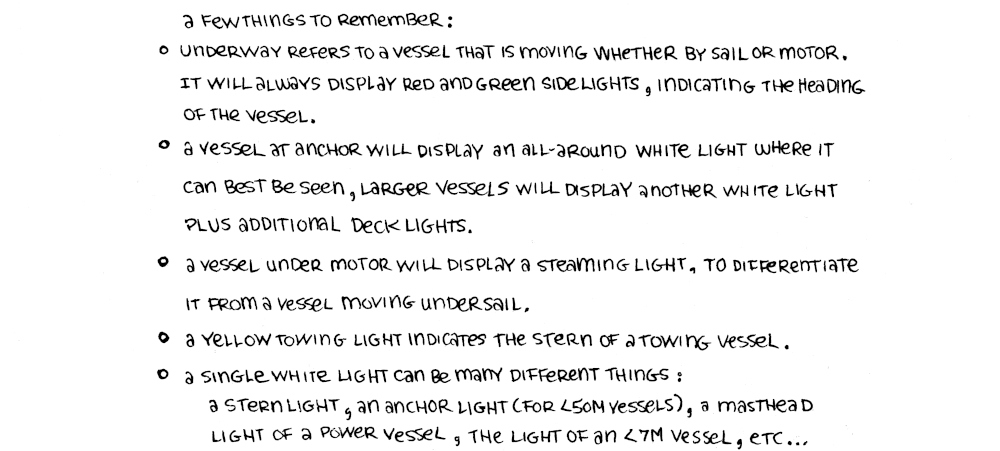 a FEW THINGS TO REMEMBER:
o UNDERWAY REFERS TO a VESSEL THAT IS MOVING WHETHER BY SAIL OR MOTOR.
IT WILL ALWAYS DISPLAY RED AND GREEN SIDELIGHTS, INDICATING THE HEADING
OF THE VESSEL.
o a VESSEL AT ANCHOR WILL DISPLAY AN ALL-AROUND WHITE LIGHT WHERE IT
CAN BEST BE SEEN, LARGER VESSELS WILL DISPLAY ANOTHER WHITE LIGHT
PLUS ADDITIONAL DECK LIGHTS.
o a VESSEL UNDER MOTOR WILL DISPLAY a STEAMING LIGHT, TO DIFFERENTIATE
IT FROM a VESSEL MOVING UNDERSAIL.
o a YELLOW TOWING LIGHT INDICATES THE STERN OF a TOWING VESSEL.
o a SINGLE WHITE LIGHT CAN BE MANY DIFFERENT THINGS:
a STERN LIGHT, AN ANCHOR LIGHT (FOR <50M VESSELS), a MASTHEAD
LIGHT OF a POWER VESSEL, THE LIGHT OF AN <7M VESSEL, ETC...